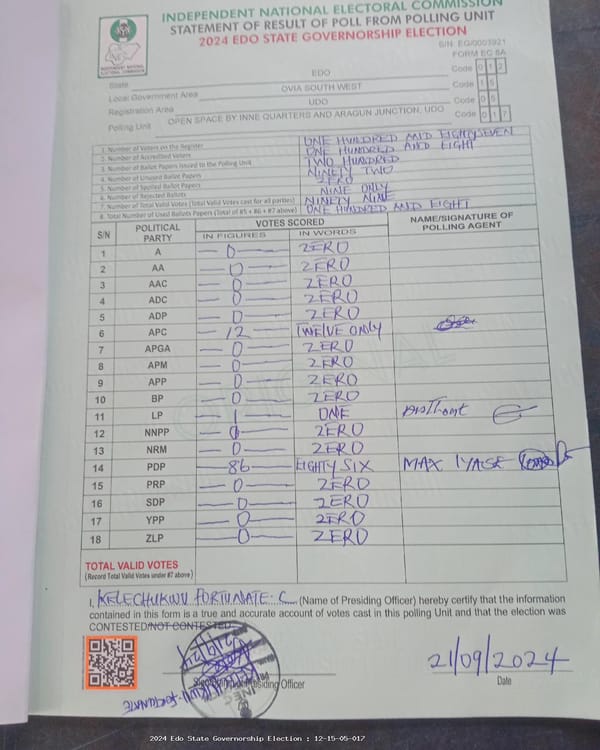 INDEPENDENT NATIONAL ELECTORAL COMMISSION
STATEMENT OF RESULT OF POLL FROM POLLING UNIT
2024 EDO STATE GOVERNORSHIP ELECTION
S/N: EG/0003921
FORM EC 8A
State EDO Code 012
Local Government Area OVIA SOUTH WEST Code 15
Registration Area UDO Code 05
Polling Unit OPEN SPACE BY INNE QUARTERS AND ARAGUN JUNCTION, UDO Code 017
1. Number of Voters on the Register ONE HUNDRED AND EIGHTY SEVEN
2. Number of Accredited Voters ONE HUNDRED AND EIGHT
3. Number of Ballot Papers Issued to the Polling Unit TWO HUNDRED
4. Number of Unused Ballot Papers NINETY TWO
5. Number of Spoiled Ballot Papers ZERO
6. Number of Rejected Ballots NINE ONLY
7. Number of Total Valid Votes (Total Valid Votes cast for all parties) NINETY NINE
8. Total Number of Used Ballots Papers (Total of #5 + #6 + #7 above) ONE HUNDRED AND EIGHT
S/N POLITICAL PARTY VOTES SCORED NAME/SIGNATURE OF POLLING AGENT
IN FIGURES IN WORDS
1 A 0 ZERO
2 AA 0 ZERO
3 AAC 0 ZERO
4 ADC 0 ZERO
5 ADP 0 ZERO
6 APC 12 TWELVE ONLY
7 APGA 0 ZERO
8 APM 0 ZERO
9 APP 0 ZERO
10 BP 0 ZERO
11 LP 1 ONE
12 NNPP 0 ZERO
13 NRM 0 ZERO
14 PDP 86 EIGHTY SIX MAX
15 PRP 0 ZERO
16 SDP 0 ZERO
17 YPP 0 ZERO
18 ZLP 0 ZERO
TOTAL VALID VOTES
(Record Total Valid Votes under #7 above)
I, KELECHUKWU FORTUNATE. C (Name of Presiding Officer) hereby certify that the information
contained in this form is a true and accurate account of votes cast in this polling Unit and that the election was
CONTESTED/NOT CONTESTED.
21/09/2024
Presiding Officer Date
2024 Edo State Governorship Election : 12-15-05-017